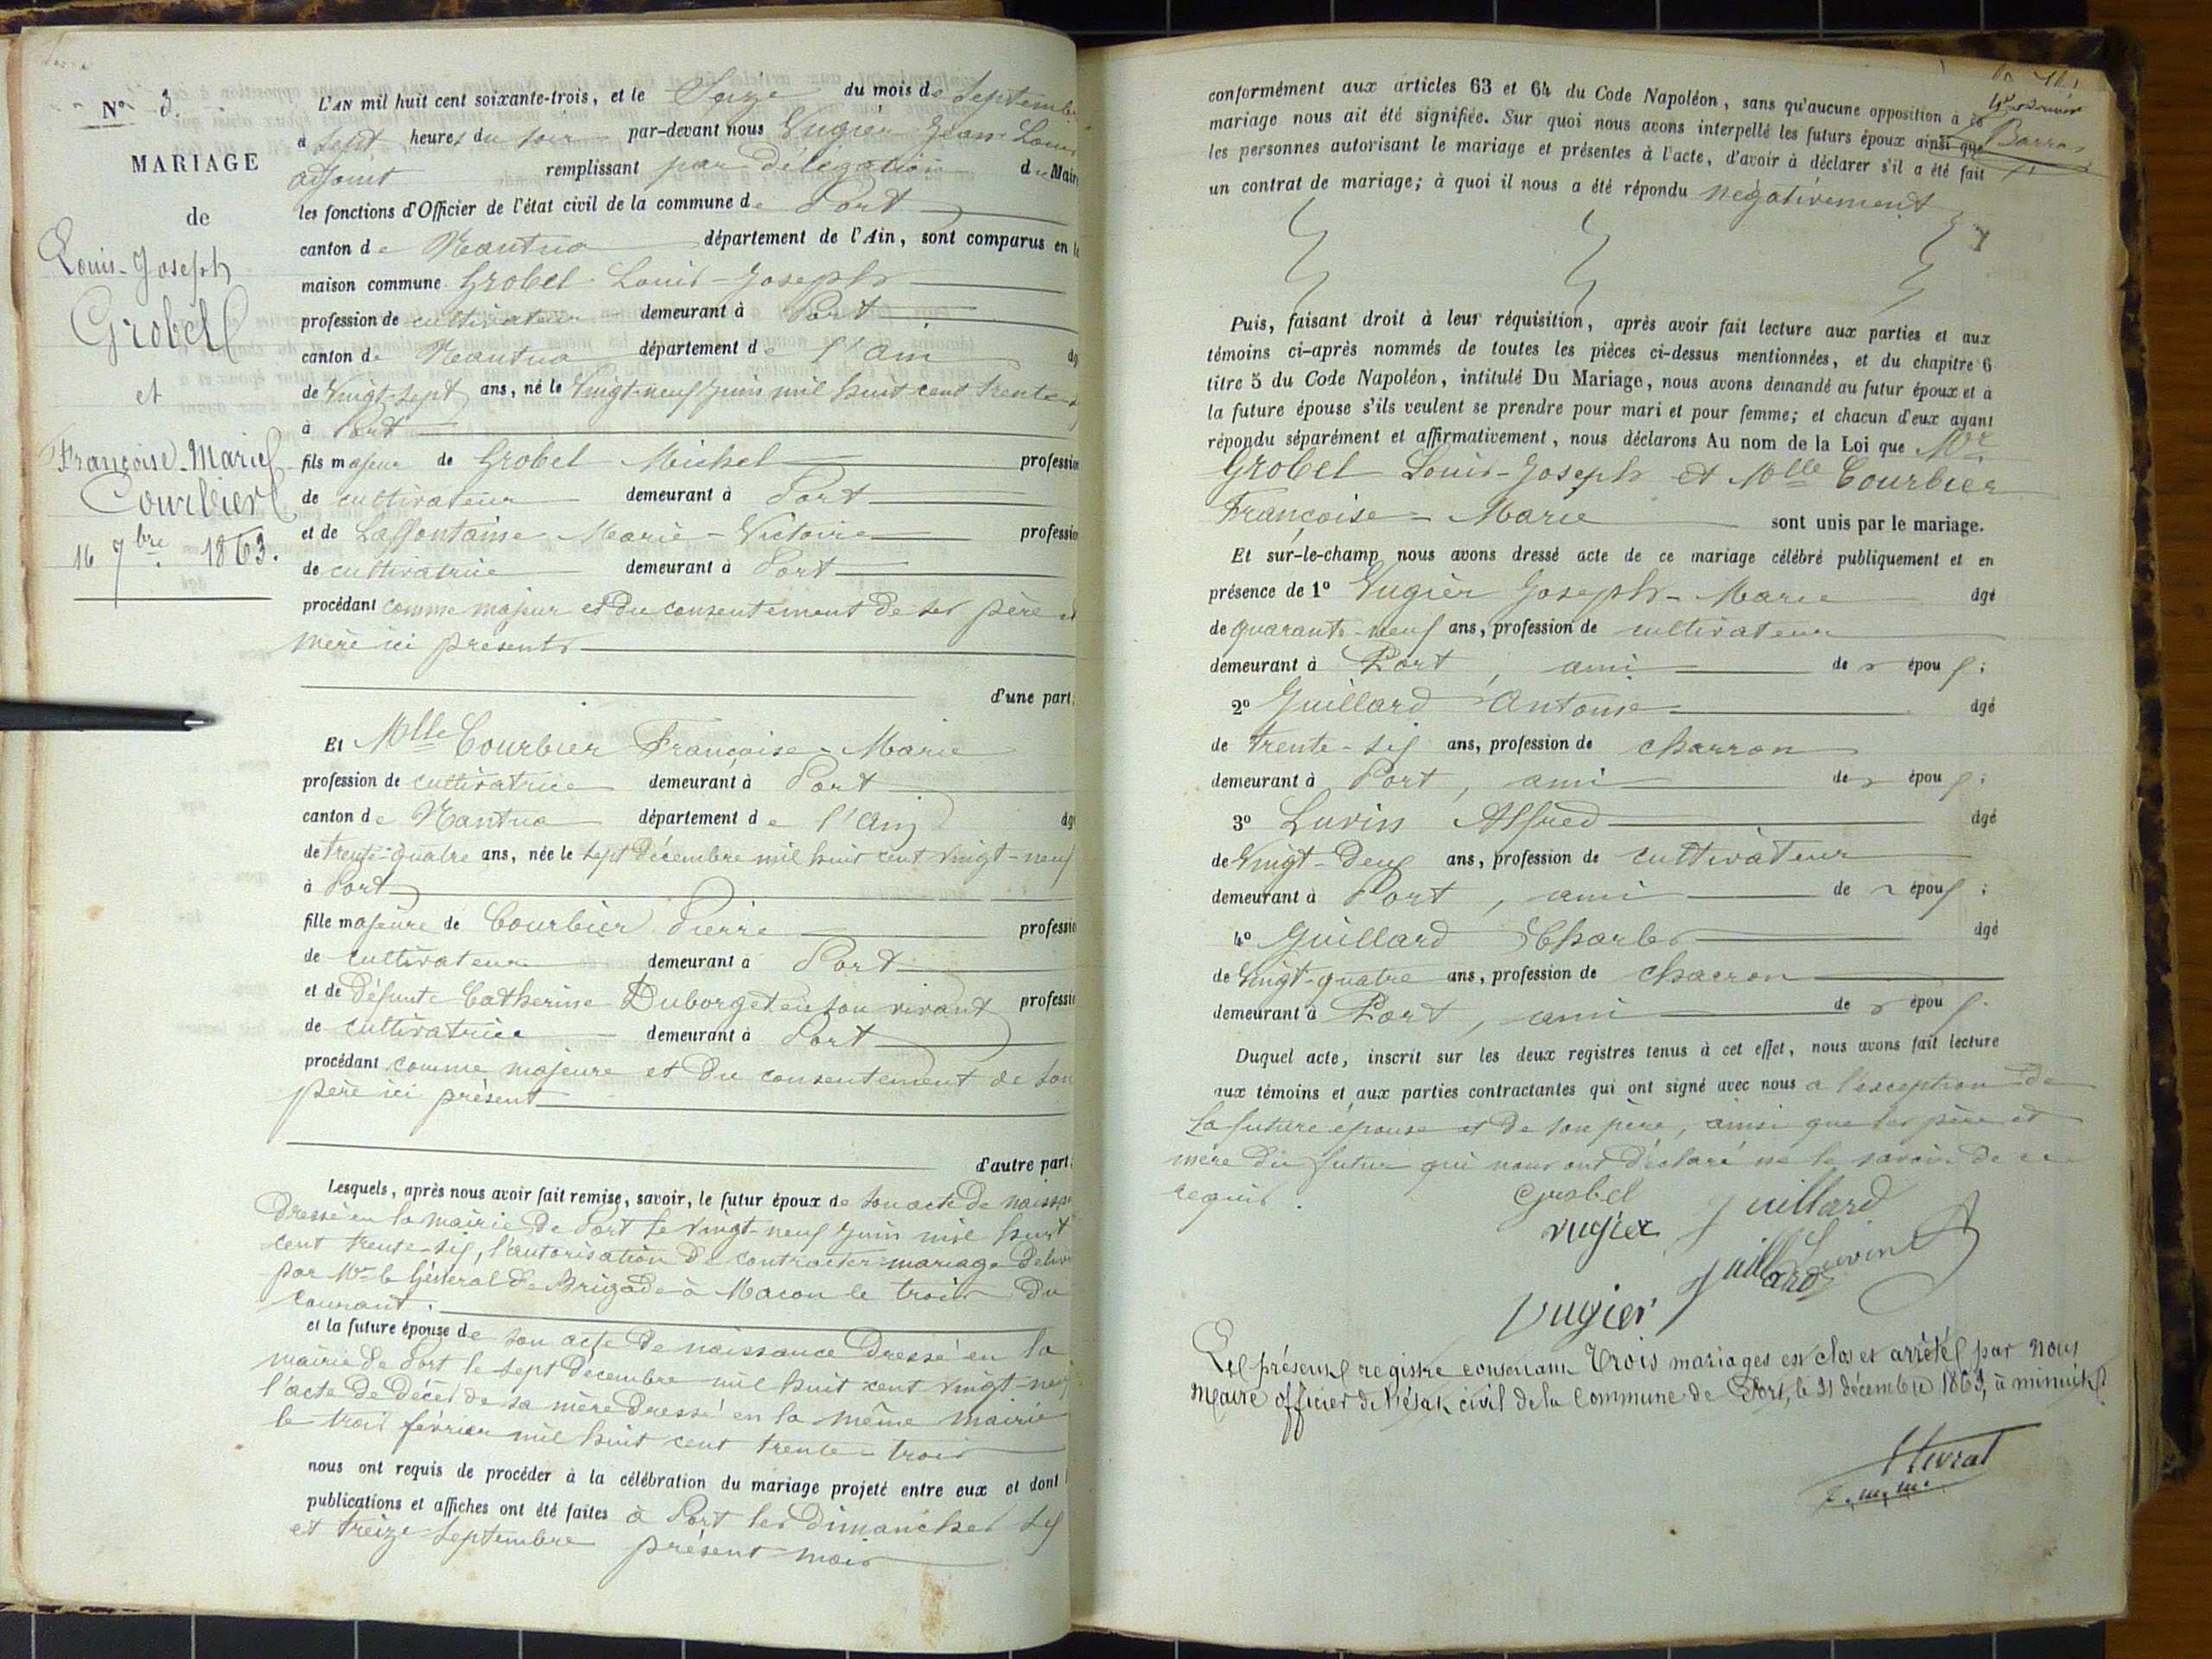 N° 3.
MARIAGE
de
Louis-Joseph
Grobel
et
Françoise-Marie
Courbier
16 7bre 1863.
L'AN mil huit cent soixante-trois, et le Seize du mois de Septembre
à sept heures du soir par-devant nous Vugier Jean Louis
adjoint remplissant par délégation du Maire
les fonctions d'Officier de l'état civil de la commune de Port
canton de Nantua département de l'Ain, sont comparus en la
maison commune Grobel Louis-Joseph
profession de cultivateur demeurant à Port
canton de Nantua département de l'Ain âg
de vingt-sept ans, né le vingt-neuf juin mil huit cent trente-
à Port
fils majeur de Grobel Michel profession
de cultivateur demeurant à Port
et de Laffontaine Marie-Victoire profession
de cultivatrice demeurant à Port
procédant comme majeur et du consentement de ses père et
mère ici présents
d'une part;
Et Mlle Courbier Françoise-Marie
profession de cultivatrice demeurant à Port
canton de Nantua département de l'Ain âgé
de trente-quatre ans, née le sept décembre mil huit cent vingt-neuf
à Port
fille majeure de Courbier Pierre professio
de cultivateur demeurant à Port
et de défunte Catherine Duborget en son vivant professio
de cultivatrice demeurant à Port
procédant comme majeure et du consentement de son
père ici présent
d'autre part;
Lesquels, après nous avoir fait remise, savoir, le futur époux de son acte de naissance
dressé en la mairie de Port le vingt-neuf juin mil huit
cent trente-six, l'autorisation de contracter mariage déliv
par Mr le Général de Brigade à Macon le trois du
courant.
et la future épouse de son acte de naissance dressé en la
mairie de Port le sept décembre mil huit cent vingt-neuf
l'acte de décès de sa mère dressé en la même mairie
le trois février mil huit cent trente-trois
nous ont requis de procéder à la célébration du mariage projeté entre eux et dont
publications et affiches ont été faites à Port les dimanches six
et treize septembre présent mois
conformément aux articles 63 et 64 du Code Napoléon, sans qu'aucune opposition à ce
mariage nous ait été signifiée. Sur quoi nous avons interpellé les futurs époux ainsi que
les personnes autorisant le mariage et présentes à l'acte, d'avoir à déclarer s'il a été fait
un contrat de mariage; à quoi il nous a été répondu négativement
Puis, faisant droit à leur réquisition, après avoir fait lecture aux parties et aux
témoins ci-après nommés de toutes les pièces ci-dessus mentionnées, et du chapitre 6
titre 5 du Code Napoléon, intitulé Du Mariage, nous avons demandé au futur époux et à
la future épouse s'ils veulent se prendre pour mari et pour femme; et chacun d'eux ayant
répondu séparément et affirmativement, nous déclarons Au nom de la Loi que Mr
Grobel Louis-Joseph et Mlle Courbier
Françoise-Marie sont unis par le mariage.
Et sur-le-champ nous avons dressé acte de ce mariage célébré publiquement et en
présence de 1° Vugier Joseph-Marie âgé
de quarante-neuf ans, profession de cultivateur
demeurant à Port, ami des époux;
2° Juillard Antoine âgé
de trente-six ans, profession de charron
demeurant à Port, ami des époux;
3° Luvin Alfred âgé
de vingt-deux ans, profession de cultivateur
demeurant à Port, ami des époux;
4° Juillard Charles âgé
de vingt-quatre ans, profession de charron
demeurant à Port, ami des époux.
Duquel acte, inscrit sur les deux registres tenus à cet effet, nous avons fait lecture
aux témoins et aux parties contractantes qui ont signé avec nous à l'exception de
la future épouse et de son père, ainsi que les père et
mère du futur qui nous ont déclaré ne le savoir de ce
requis.
Grobel Juillard
Vugier
Juillard Luvin A
Vugier
Le présent registre contenant trois mariages est clos et arrêté par nous
Maire officier de l'état civil de la commune de Port, le 31 décembre 1863, à minuit.